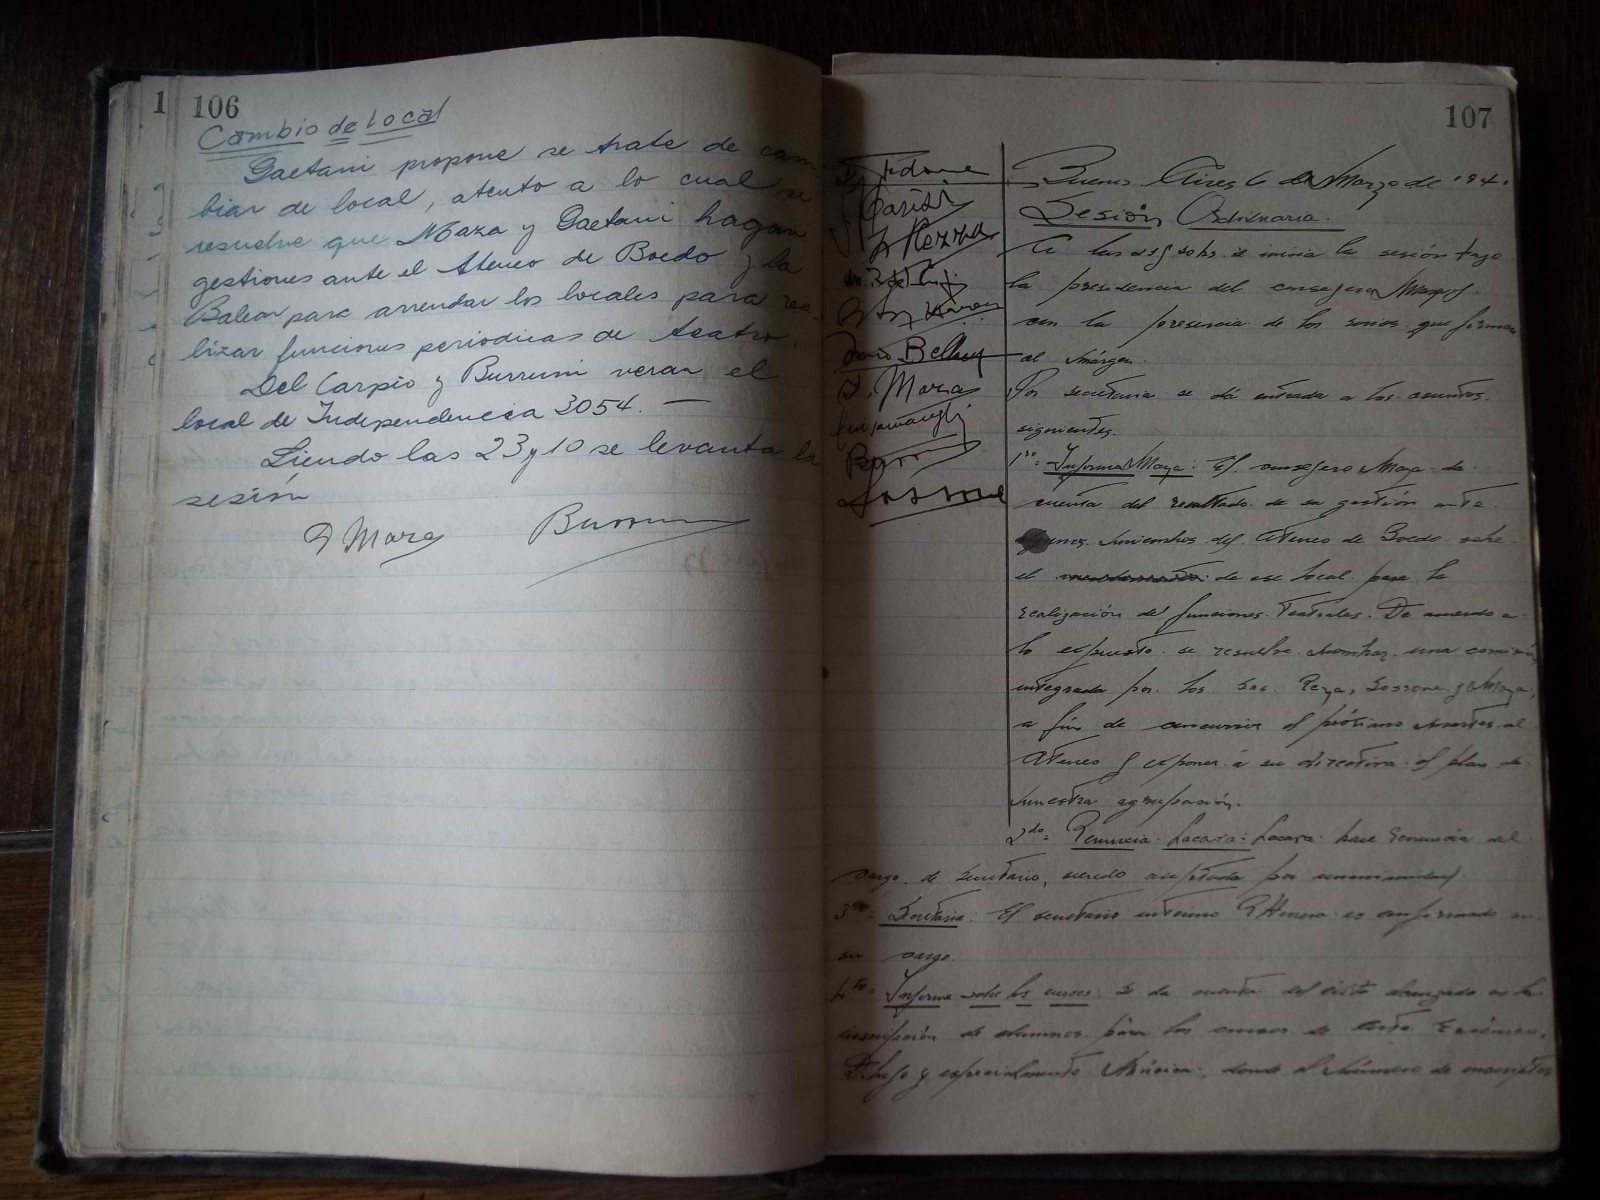 1
106
Cambio de local
Gaetani propone se trate de cam
biar de local, atento a lo cual se
resuelve que Maza y Gaetani hagan
gestiones ante el Ateneo de Boedo y la
Balear para arrendar los locales para rea
lizar funciones periodicas de teatro.
Del Carpio y Burrini veran el
local de Independencia 3054. —
Siendo las 23 y 10 se levanta la
sesión
Maza Burrini
107
Buenos Aires 6 de Marzo de 194
Sesión Ordinaria.
A las se inicia la sesión bajo
la presidencia del consejero
con la presencia de los socios que firman
al márgen.
Por secretaria se dá entrada a los asuntos
siguientes.
1ro= Informe Maza: El consejero Maza da
cuenta del resultado de su gestión ante
miembros del Ateneo de Boedo sobre
el de ese local para la
realización de funciones teatrales. De acuerdo a
lo expuesto se resuelve nombrar una comisión
integrada por los Sres. Maza,
a fin de concurrir el próximo martes al
Ateneo y exponer á su directiva el plan de
nuestra agrupación.
2do= Renuncia Lacasa: Lacasa hace renuncia del
cargo de Secretario, siendo aceptada por unanimidad.
3ro= Secretaria. El secretario interino es confirmado en
su cargo.
4to= Informe sobre los cursos: Se da cuenta del éxito alcanzado en la
inscripción de alumnos para los cursos de
Dibujo y especialmente Música, donde el número de inscriptos
Maza